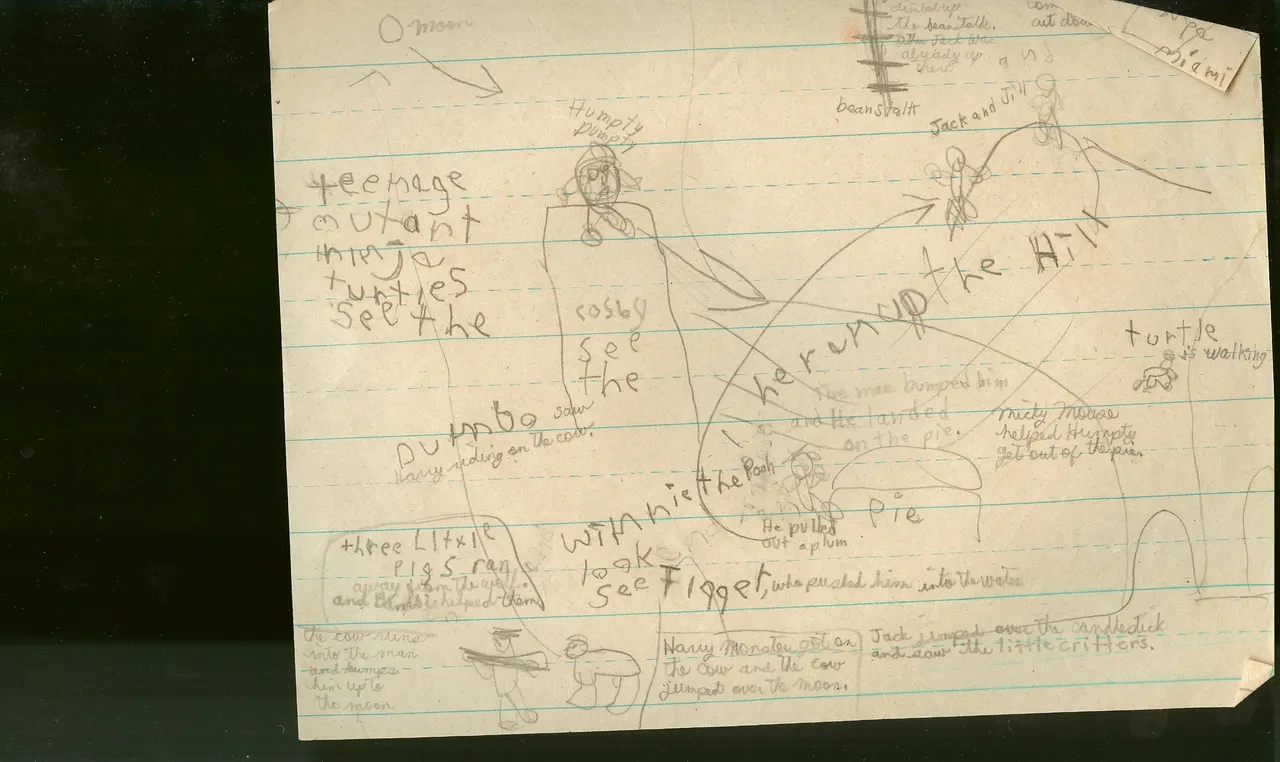 moon
the beanstalk.
after Jack was
already up
there.
beanstalk
cut down
and
Miami
Humpty
Dumpty
Jack and Jill
teenage
mutant
ninje
turtles
see the
cosby
see
the
he ran up the Hill
turtle
is walking
The man bumped him
and He landed
on the pie.
Micky Mouse
helped Humpty
get out of the pie.
Dumbo saw
Harry riding on the cow.
Pie
He pulled
out a plum
winnie the Pooh
look
see Tigger, who pushed him into the water
three Little
Pigs ran
away from the wolf
and Bambi helped them
the cow runs
into the man
and bumps
him up to
the moon
Harry Monster got on
the cow and the cow
jumped over the moon.
Jack jumped over the candlestick
and saw the little critters.